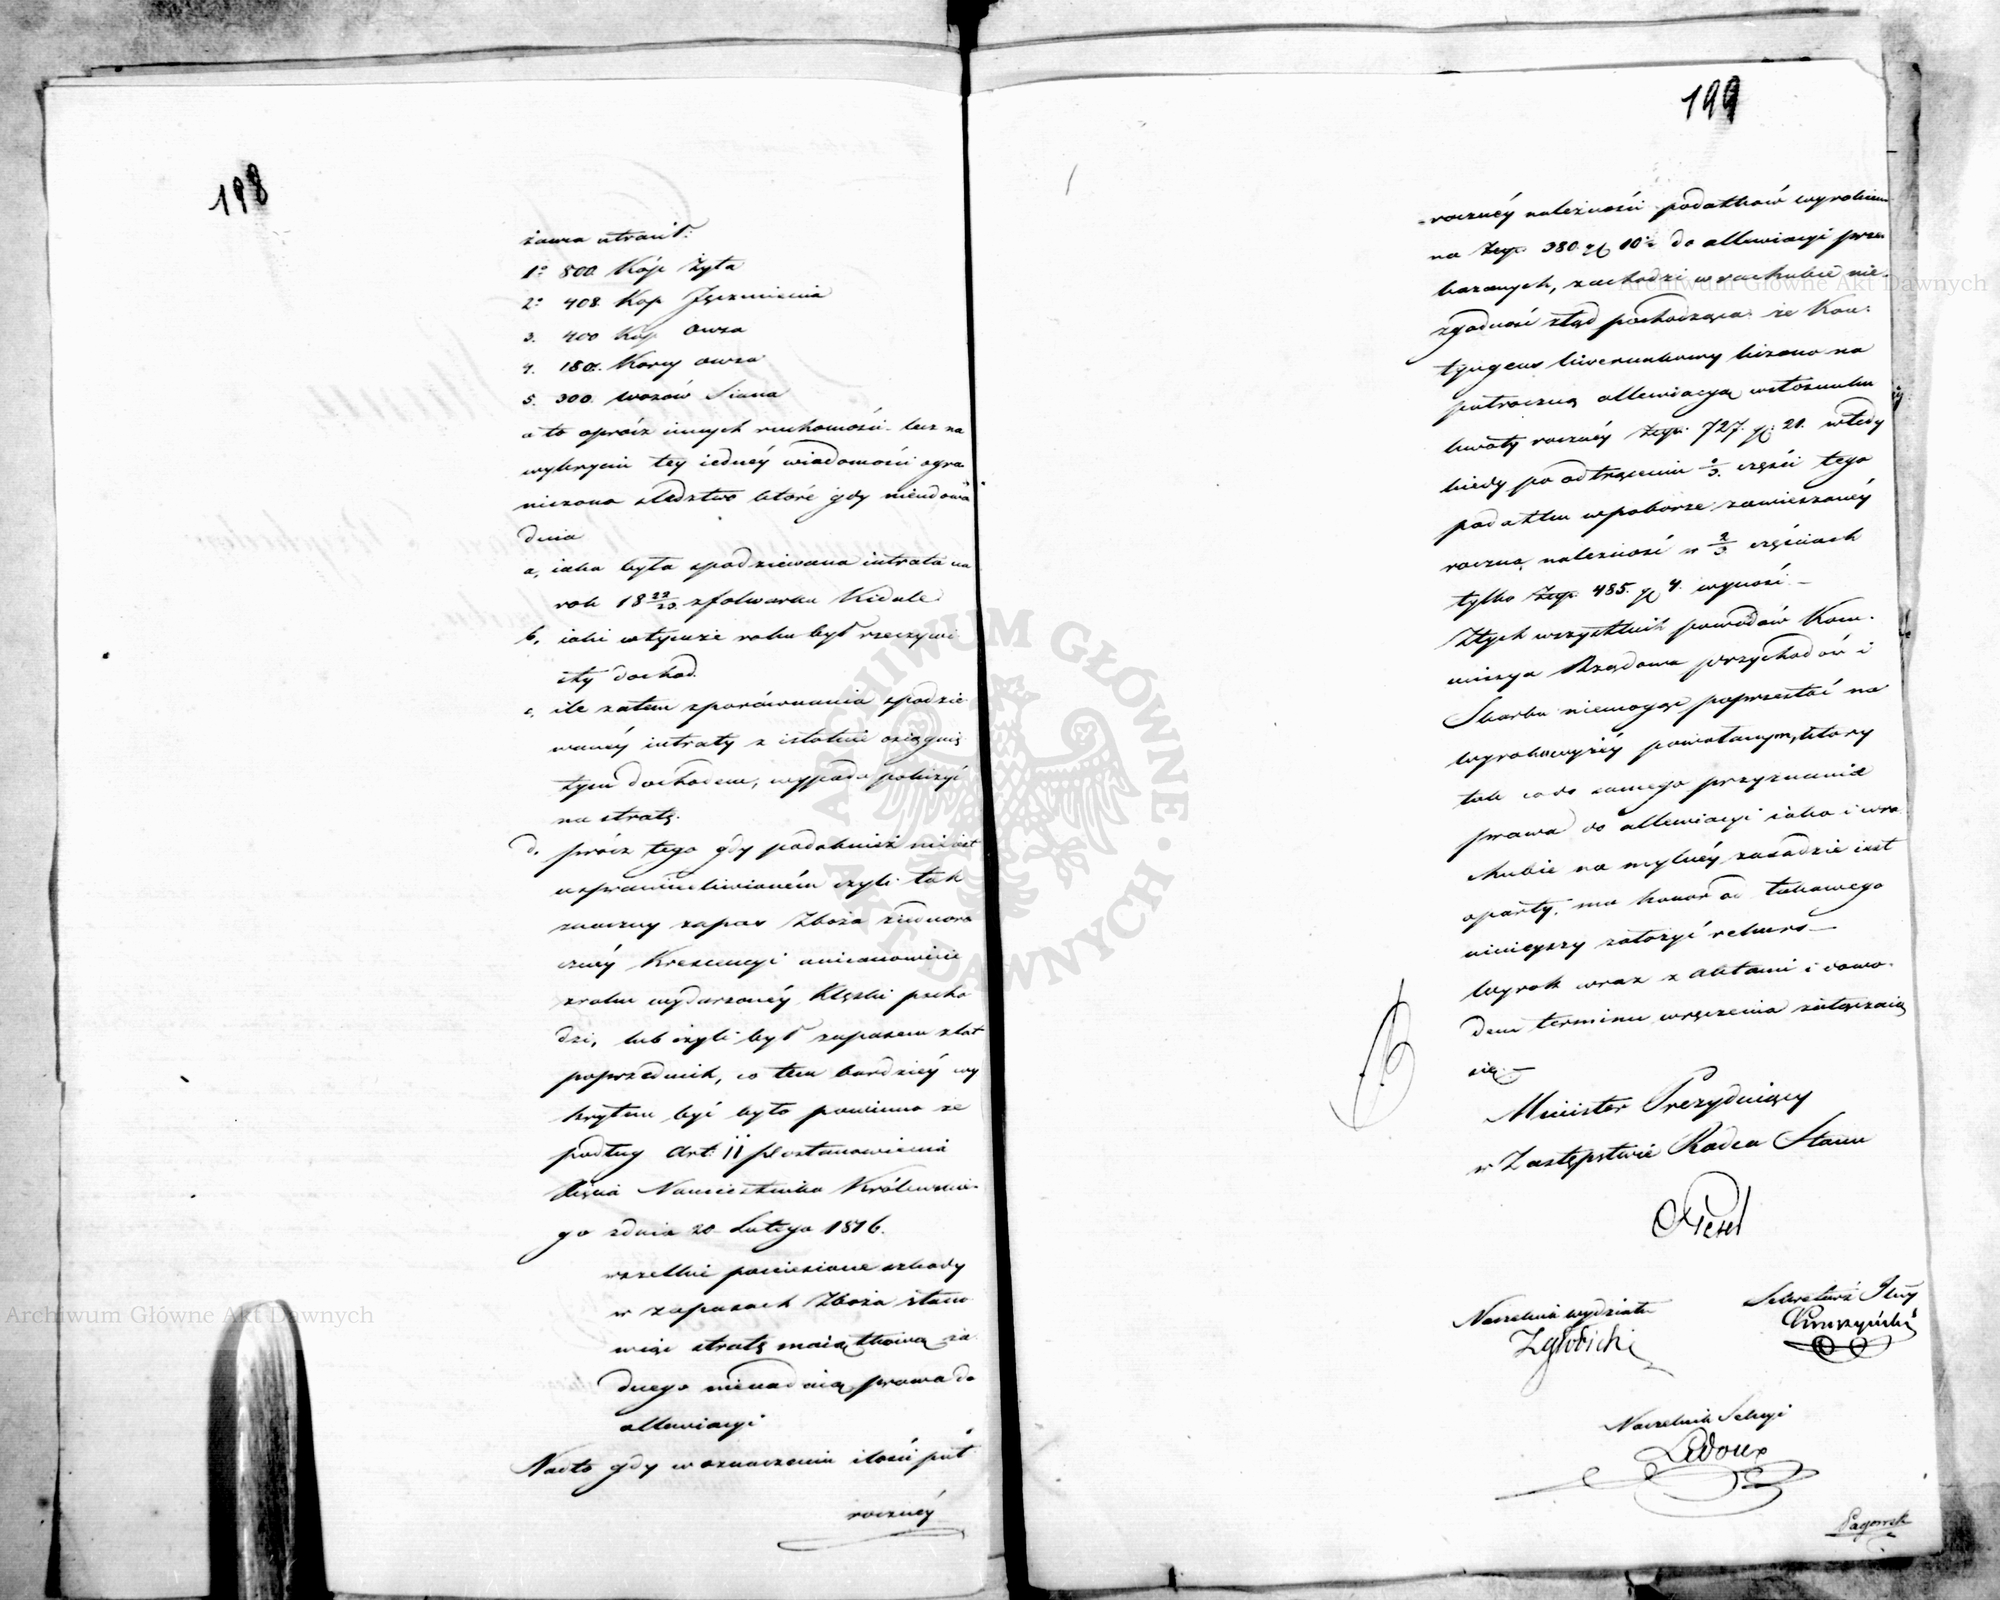 198
żawca utracił:
1º 800. Kóp Żyta
2º 408. Kop Jęczmienia
3. 400 Kóp Owsa
4. 180. Korcy owsa
5. 300. wozów Siana
a to oprócz innych ruchomości. lecz na
wykryciu tey iednéy wiadomości ogra
niczono śledztwo które gdy nieudowa
dnia
a, iaka była spodziewana intrata na
rok 18 22/23. z folwarku
b, iaki w tymże roku był rzeczywi
sty dochod.
c, ile zatem z porównania spodzie
wanéy intraty z istotnie osiągnię
tym dochodem, wypada policzyć
na stratę.
d. prócz tego gdy podobnież nie iest
usprawiedliwioném czyli tak
znaczny zapas Zboża z iednoro
cznéy Krescencyi a mianowicie
z roku wydarzonéy Klęski pocho
dzi, lub czyli był zapasem z lat
poprzednich, co tem bardziéy wy
krytem być było powinno że
podług Art: 11 Postanowienia
Xięcia Namiestnika Królewskie-
go z dnia 20 Lutego 1816.
wszelkie poniesione szkody
w zapasach Zboża stano
wiąc stratę maiątkową ża
dnego nienadaią prawa do
allewiacyi
Nadto gdy w oznaczeniu ilości pół
rocznéy
199
-rocznéy należności podatków wyrokiem
na Złp. 380. gr 10 do allewiacyi prze-
kazanych, zachodzi w rachubie nie-
zgodność ztąd pochodząca. że Kon-
tyngens liwerunkowy liczono na
półroczną allewiacyą w stosunku
kwoty rocznéy Złp. 727. gr. 21. wtedy
kiedy po odtrąceniu 1/3. części tego
podatku w poborze zawieszonéy
roczna należność w 2/3 częściach
tylko Złp. 485. gr 4. wynosi.—
Z tych wszystkich powodów Kom-
missya Rządowa przychodów i
Skarbu niemogąc poprzestać na
wyroku wyżéy powołanym, który
tak co do samego przyznania
prawa do allewiacyi iako i w ra
chubie na mylnéy zasadzie iest
oparty, ma honor od takowego
ninieyszy założyć rekurs—
Wyrok wraz z aktami i dowo-
dem terminu wręczenia załączaią
się.—
Minister Prezyduiący
w Zastępstwie Radca Stanu
Naczelnik wydziału
Sekretarz Jlny
Naczelnik Sekcyi
Ledoux
Archiwum Główne Akt Dawnych
ARCHIWUM GŁÓWNE AKT DAWNYCH
Archiwum Główne Akt Dawnych